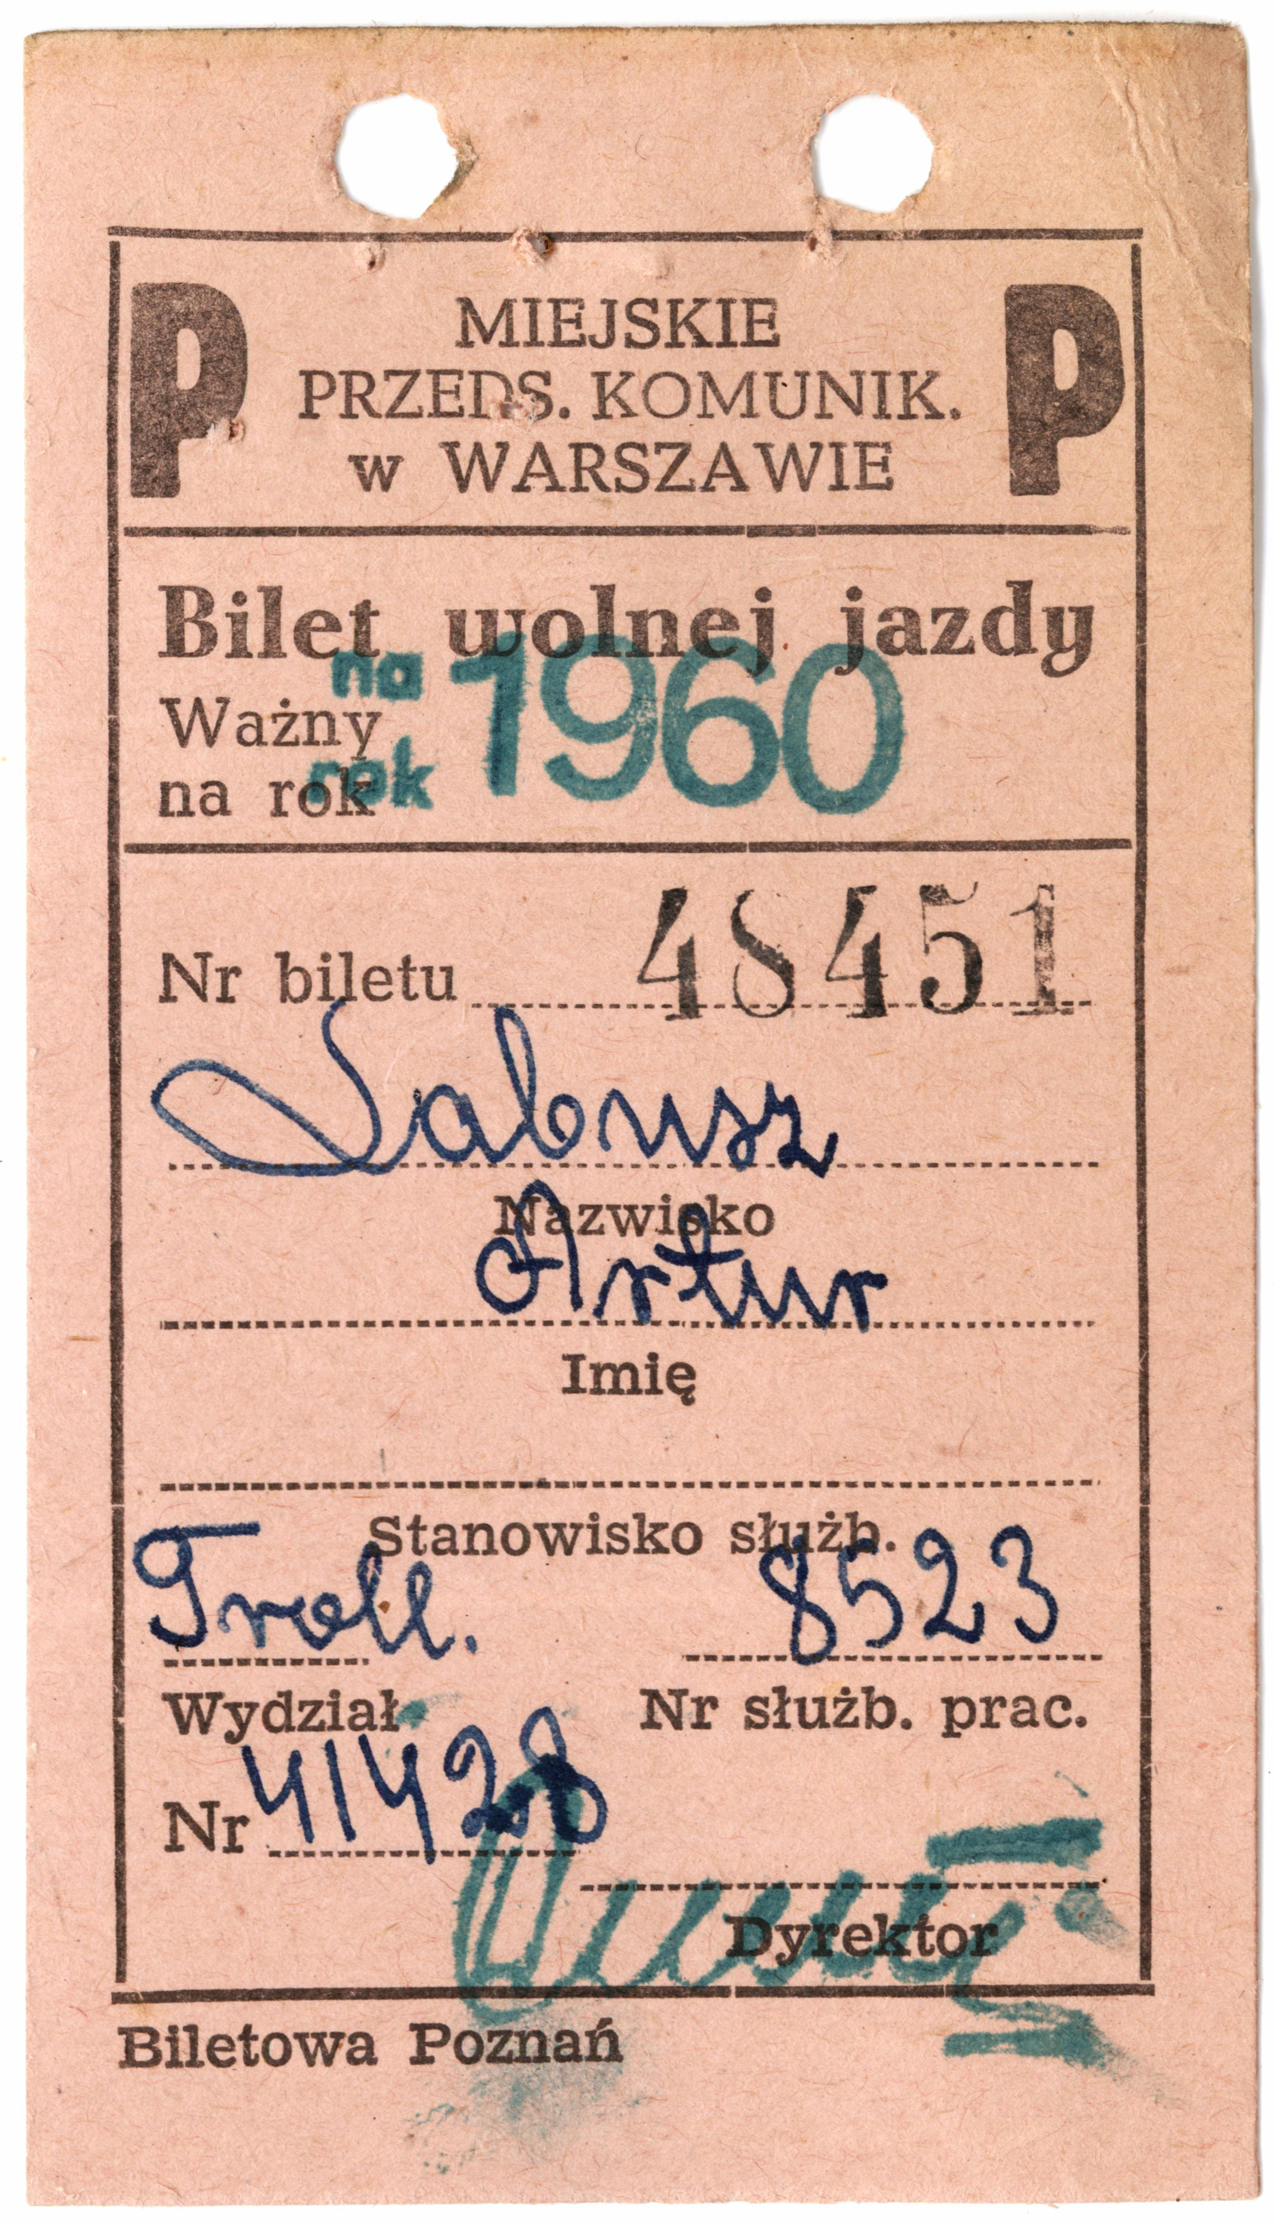 P MIEJSKIE P
PRZEDS. KOMUNIK.
w WARSZAWIE
Bilet wolnej jazdy
na 1960
Ważny
rok
na rok
Nr biletu 48451
Labusz
Nazwisko
Artur
Imię
Stanowisko służb.
Troll. 8523
Wydział Nr służb. prac.
Nr 41428
Dyrektor
Biletowa Poznań